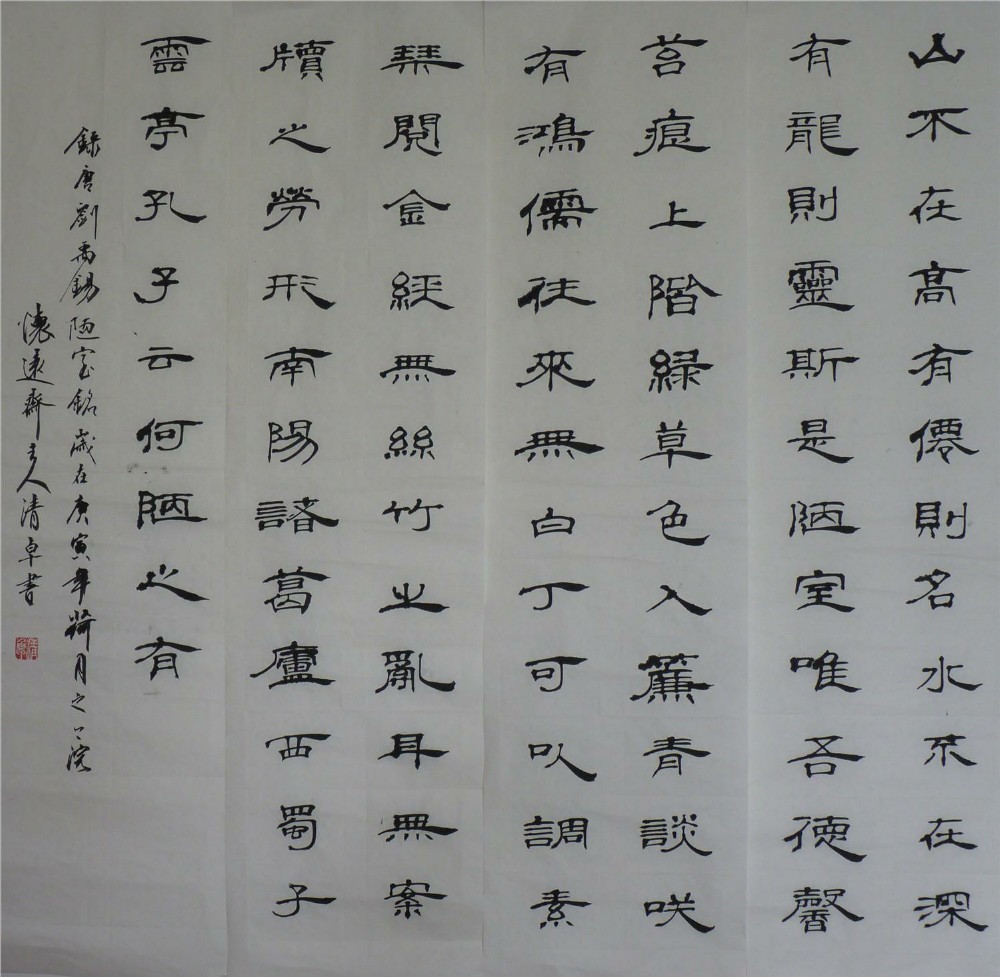 山不在高有僊則名水不在深
有龍則靈斯是陋室唯吾德馨
苔痕上階綠草色入簾青談咲
有鴻儒往來無白丁可㕥調素
琹閱金經無絲竹之亂耳無案
牘之勞形南陽諸葛廬西蜀子
雲亭孔子云何陋之有
錄唐劉禹錫陋室銘歲在庚寅年 月之上浣
懷遠齋主人清卓書